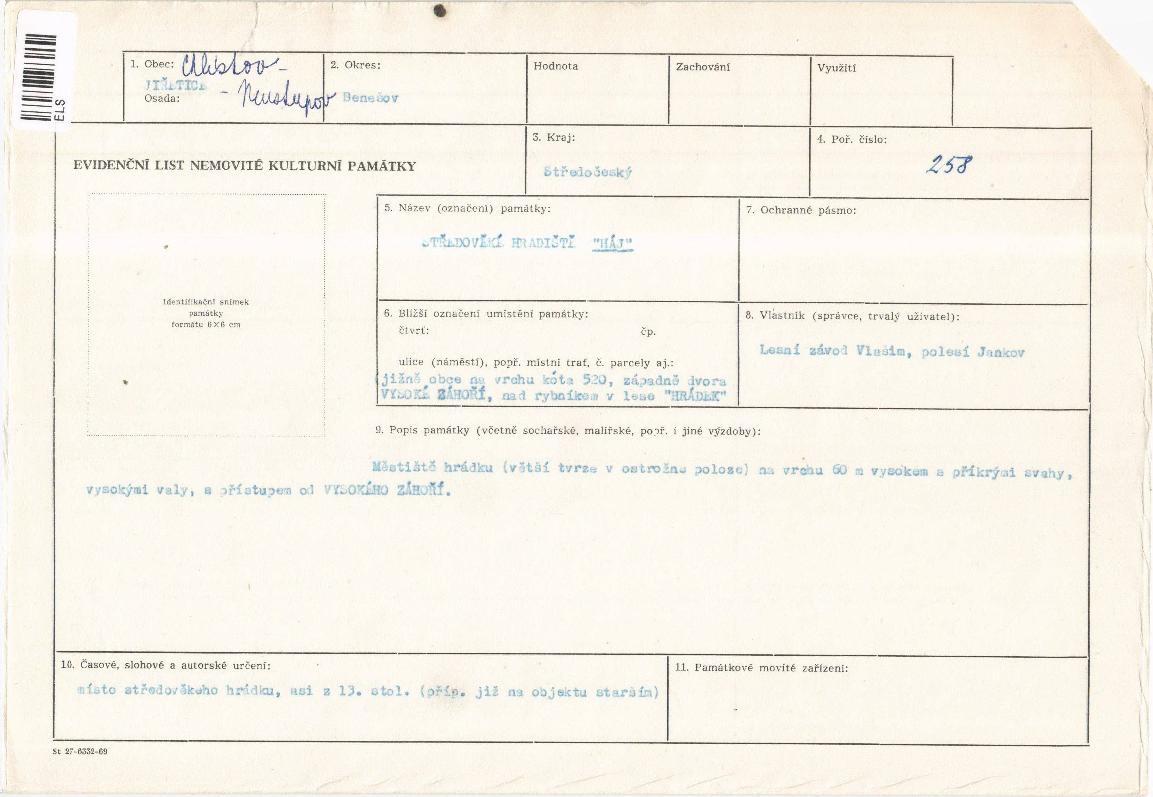 ELS
1. Obec: Chlístov-
JIŘETICE
Osada: - Neustupov
2. Okres:
Benešov
Hodnota
Zachování
Využití
EVIDENČNÍ LIST NEMOVITÉ KULTURNÍ PAMÁTKY
3. Kraj:
Středočeský
4. Poř. číslo:
258
Identifikační snímek
památky
formátu 6×6 cm
5. Název (označení) památky:
STŘEDOVĚKÉ HRADIŠTĚ "HÁJ"
7. Ochranné pásmo:
6. Bližší označení umístění památky:
čtvrť: čp.
ulice (náměstí), popř. místní trať, č. parcely aj.:
jižně obce na vrchu kóta 520, západně dvora
VYSOKÉ ZÁHOŘÍ, nad rybníkem v lese "HRÁDEK"
8. Vlastník (správce, trvalý uživatel):
Lesní závod Vlašim, polesí Jankov
9. Popis památky (včetně sochařské, malířské, popř. i jiné výzdoby):
Městiště hrádku (větší tvrze v ostrožné poloze) na vrchu 60 m vysokem s příkrými svahy,
vysokými valy, s přístupem od VYSOKÉHO ZÁHOŘÍ.
10. Časové, slohové a autorské určení:
místo středověkeho hrádku, asi z 13. stol. (příp. již na objektu starším)
11. Památkové movité zařízení:
St 27-6332-69